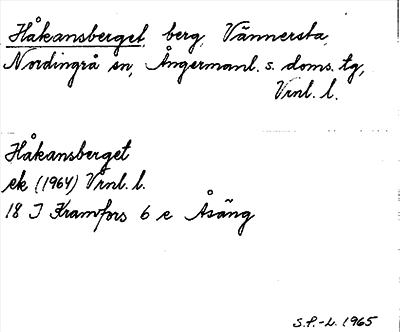 Håkansberget, berg, Vännersta,
Nordingrå sn, Ångermanl. s. doms. tg,
Vrnl. l.
Håkansberget
ek (1964) Vrnl. l.
18 I Kramfors 6 e Åsäng
S.P.-L. 1965